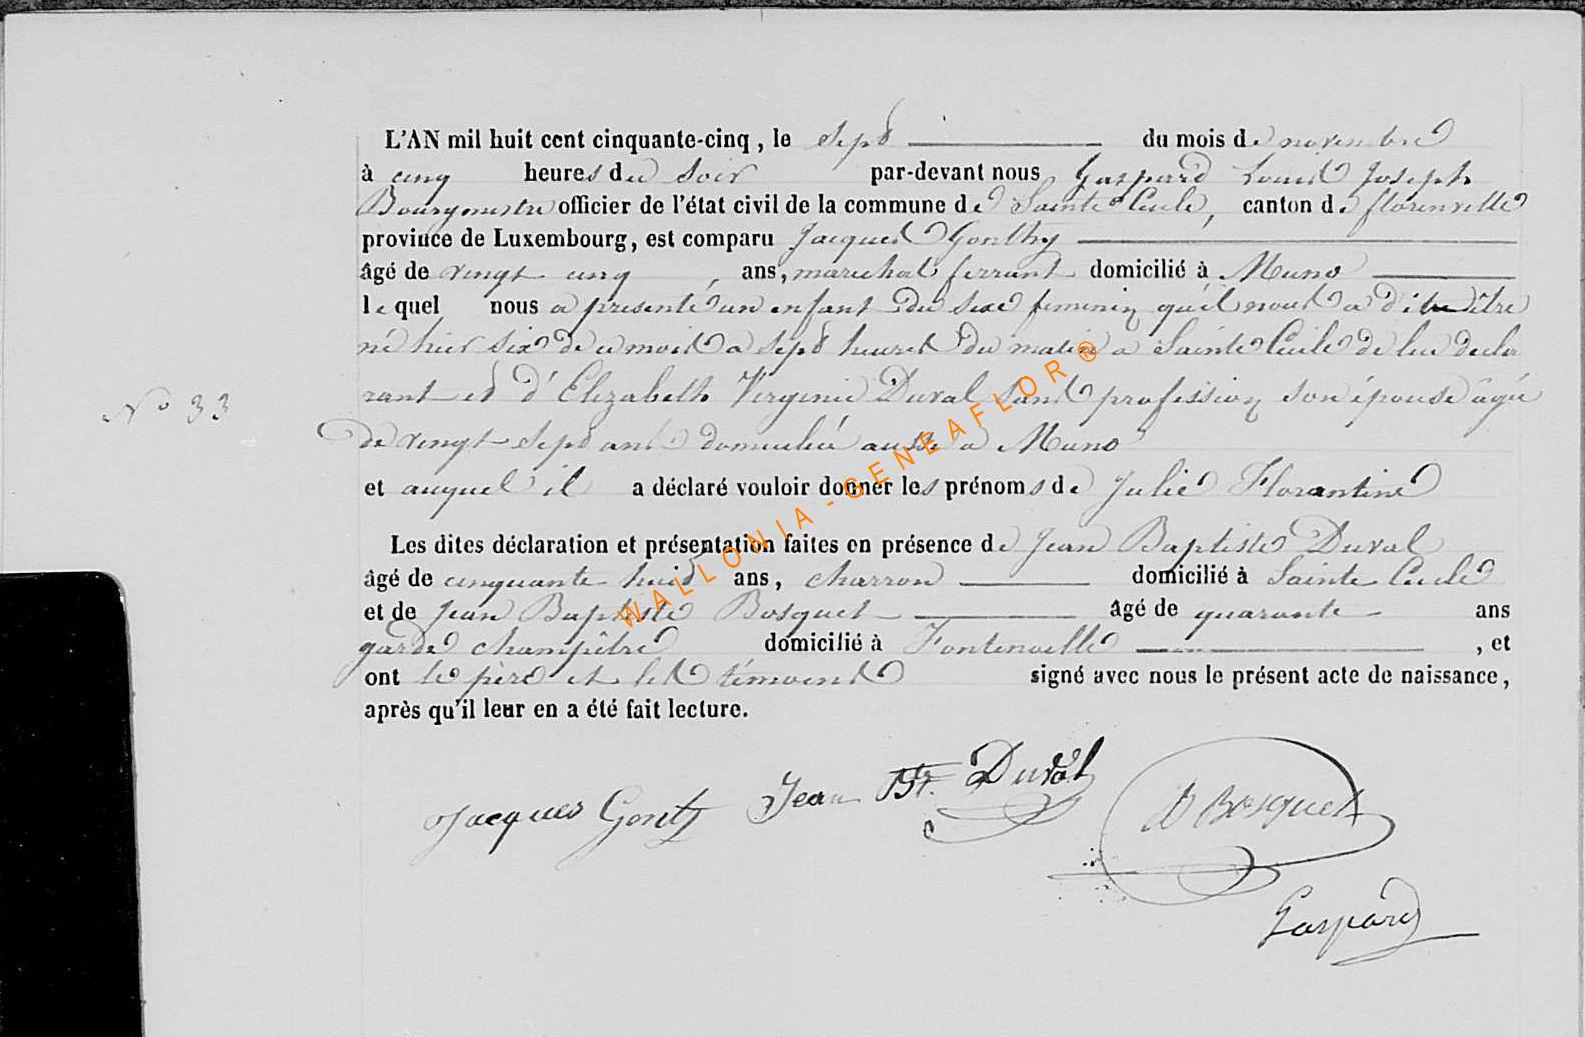 L'AN mil huit cent cinquante-cinq, le sept du mois de novembre
à cinq heures du soir par-devant nous Gaspard Louis Joseph
Bourgmestre officier de l'état civil de la commune de Sainte Cécile, canton de florenville
province de Luxembourg, est comparu Jacques Gonthy
âgé de vingt cinq, ans, marechal ferrant domicilié à Muno
lequel nous a présenté un enfant du sexe feminin qu'il nous a dit être
né hier six de ce mois a sept heures du matin a Sainte Cécile de lui décla
N° 33
rant et d'Elizabeth Virginie Duval sans profession son épouse âgée
de vingt sept ans domiciliée aussi a Muno
et auquel il a déclaré vouloir donner les prénoms de Julie Florantine
Les dites déclaration et présentation faites en présence de Jean Baptiste Duval
âgé de cinquante huit ans, charron domicilié à Sainte Cécile
et de Jean Baptiste Bosquet âgé de quarante ans
garde champêtre domicilié à Fontenoille, et
ont le père et les témoins signé avec nous le présent acte de naissance,
après qu'il leur en a été fait lecture.
Jacques Gonty Jean Bte. Duval
Bosquet
Gaspard
WALLONIA-GENEAFLOR®